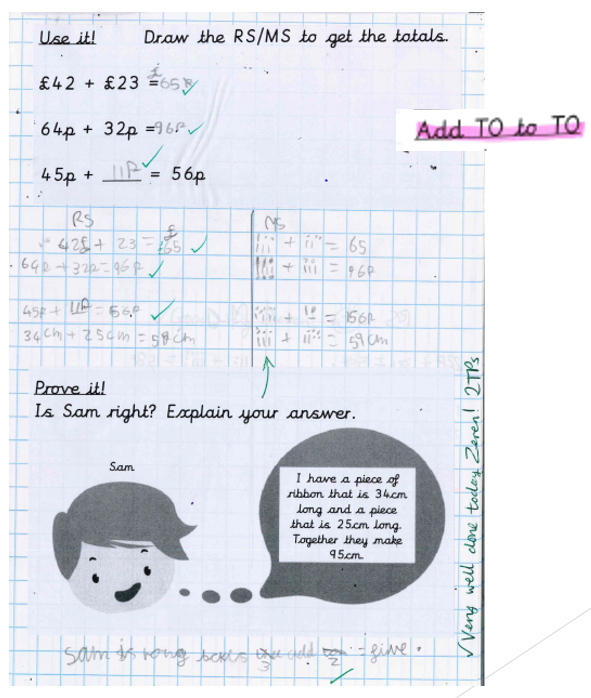 Use it! Draw the RS/MS to get the totals.
£42 + £23 = £65
64p + 32p = 96p
45p + 11p = 56p
Add TO to TO
RS MS
42£ + 23 = £65
+ = 65
64p + 32p = 96p
+ = 96p
45p + 11p = 56p
+ = 56p
34cm + 25cm = 59cm
+ = 59cm
Prove it!
Is Sam right? Explain your answer.
Sam
I have a piece of
ribbon that is 34cm
long and a piece
that is 25cm long.
Together they make
95cm.
Sam is rong add = five.
3 2
√ Very well done today Zeren! 2TPs